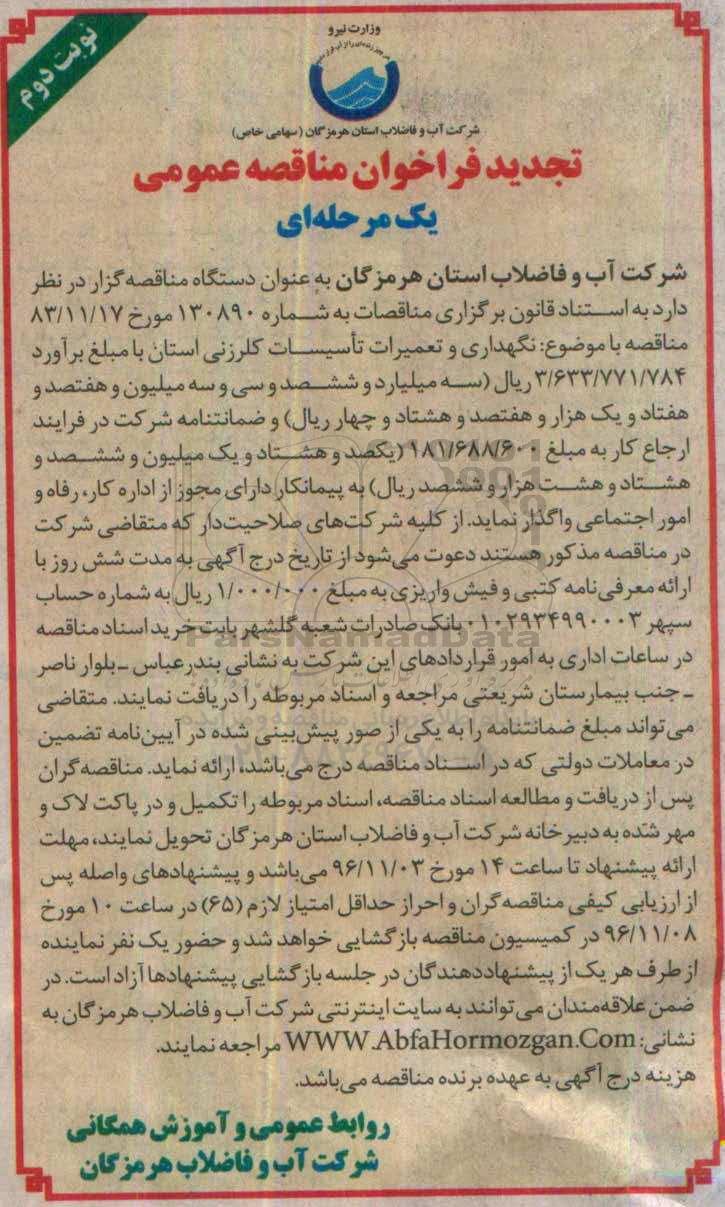 نوبت دوم
وزارت نیرو
شرکت آب و فاضلاب استان هرمزگان (سهامی خاص)
تجدید فراخوان مناقصه عمومی
یک مرحله‌ای
شرکت آب و فاضلاب استان هرمزگان به عنوان دستگاه مناقصه گزار در نظر
دارد به استناد قانون برگزاری مناقصات به شماره ۱۳۰۸۹۰ مورخ ۸۳/۱۱/۱۷
مناقصه با موضوع: نگهداری و تعمیرات تأسیسات کلرزنی استان با مبلغ برآورد
۳/۶۳۳/۷۷۱/۷۸۴ ریال (سه میلیارد و ششصد و سی و سه میلیون و هفتصد و
هفتاد و یک هزار و هفتصد و هشتاد و چهار ریال) و ضمانتنامه شرکت در فرایند
ارجاع کار به مبلغ ۱۸۱/۶۸۸/۶۰۰ (یکصد و هشتاد و یک میلیون و ششصد و
هشتاد و هشت هزار و ششصد ریال) به پیمانکار دارای مجوز از اداره کار، رفاه و
امور اجتماعی واگذار نماید. از کلیه شرکت‌های صلاحیت‌دار که متقاضی شرکت
در مناقصه مذکور هستند دعوت می‌شود از تاریخ درج آگهی به مدت شش روز با
ارائه معرفی‌نامه کتبی و فیش واریزی به مبلغ ۱/۰۰۰/۰۰۰ ریال به شماره حساب
سپهر ۰۱۰۲۹۳۴۹۹۰۰۰۳ بانک صادرات شعبه گلشهر بابت خرید اسناد مناقصه
در ساعات اداری به امور قراردادهای این شرکت به نشانی بندرعباس - بلوار ناصر
- جنب بیمارستان شریعتی مراجعه و اسناد مربوطه را دریافت نمایند. متقاضی
می‌تواند مبلغ ضمانتنامه را به یکی از صور پیش‌بینی شده در آیین‌نامه تضمین
در معاملات دولتی که در اسناد مناقصه درج می‌باشد، ارائه نماید. مناقصه گران
پس از دریافت و مطالعه اسناد مناقصه، اسناد مربوطه را تکمیل و در پاکت لاک و
مهر شده به دبیرخانه شرکت آب و فاضلاب استان هرمزگان تحویل نمایند، مهلت
ارائه پیشنهاد تا ساعت ۱۴ مورخ ۹۶/۱۱/۰۳ می‌باشد و پیشنهادهای واصله پس
از ارزیابی کیفی مناقصه گران و احراز حداقل امتیاز لازم (۶۵) در ساعت ۱۰ مورخ
۹۶/۱۱/۰۸ در کمیسیون مناقصه بازگشایی خواهد شد و حضور یک نفر نماینده
از طرف هر یک از پیشنهاددهندگان در جلسه بازگشایی پیشنهادها آزاد است. در
ضمن علاقه‌مندان می‌توانند به سایت اینترنتی شرکت آب و فاضلاب هرمزگان به
نشانی: WWW.AbfaHormozgan.Com مراجعه نمایند.
هزینه درج آگهی به عهده برنده مناقصه می‌باشد.
روابط عمومی و آموزش همگانی
شرکت آب و فاضلاب هرمزگان
ParsNamadData